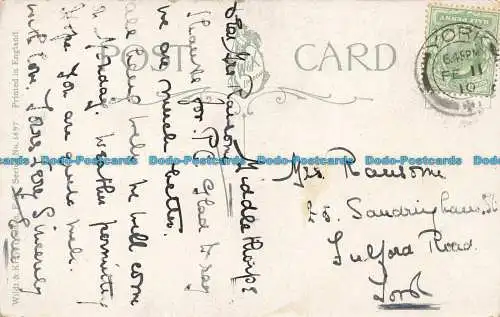 POST CARD
Middlethorpe
Dear Mrs Ransome
Thanks for P.C. Glad to say
we are much better.
all being well we will come
on Monday. Weather permitting
Hope you are quite well.
with love. Yours Very Sincerely
Mrs. Ransome
25. Sandringham St
Fulford Road.
York
YORK
6.45 PM
FE 11
10
HALFPENNY
Printed in England.
No. 1497
Dodo-Postcards Dodo-Postcards Dodo-Postcards Dodo-Postcards